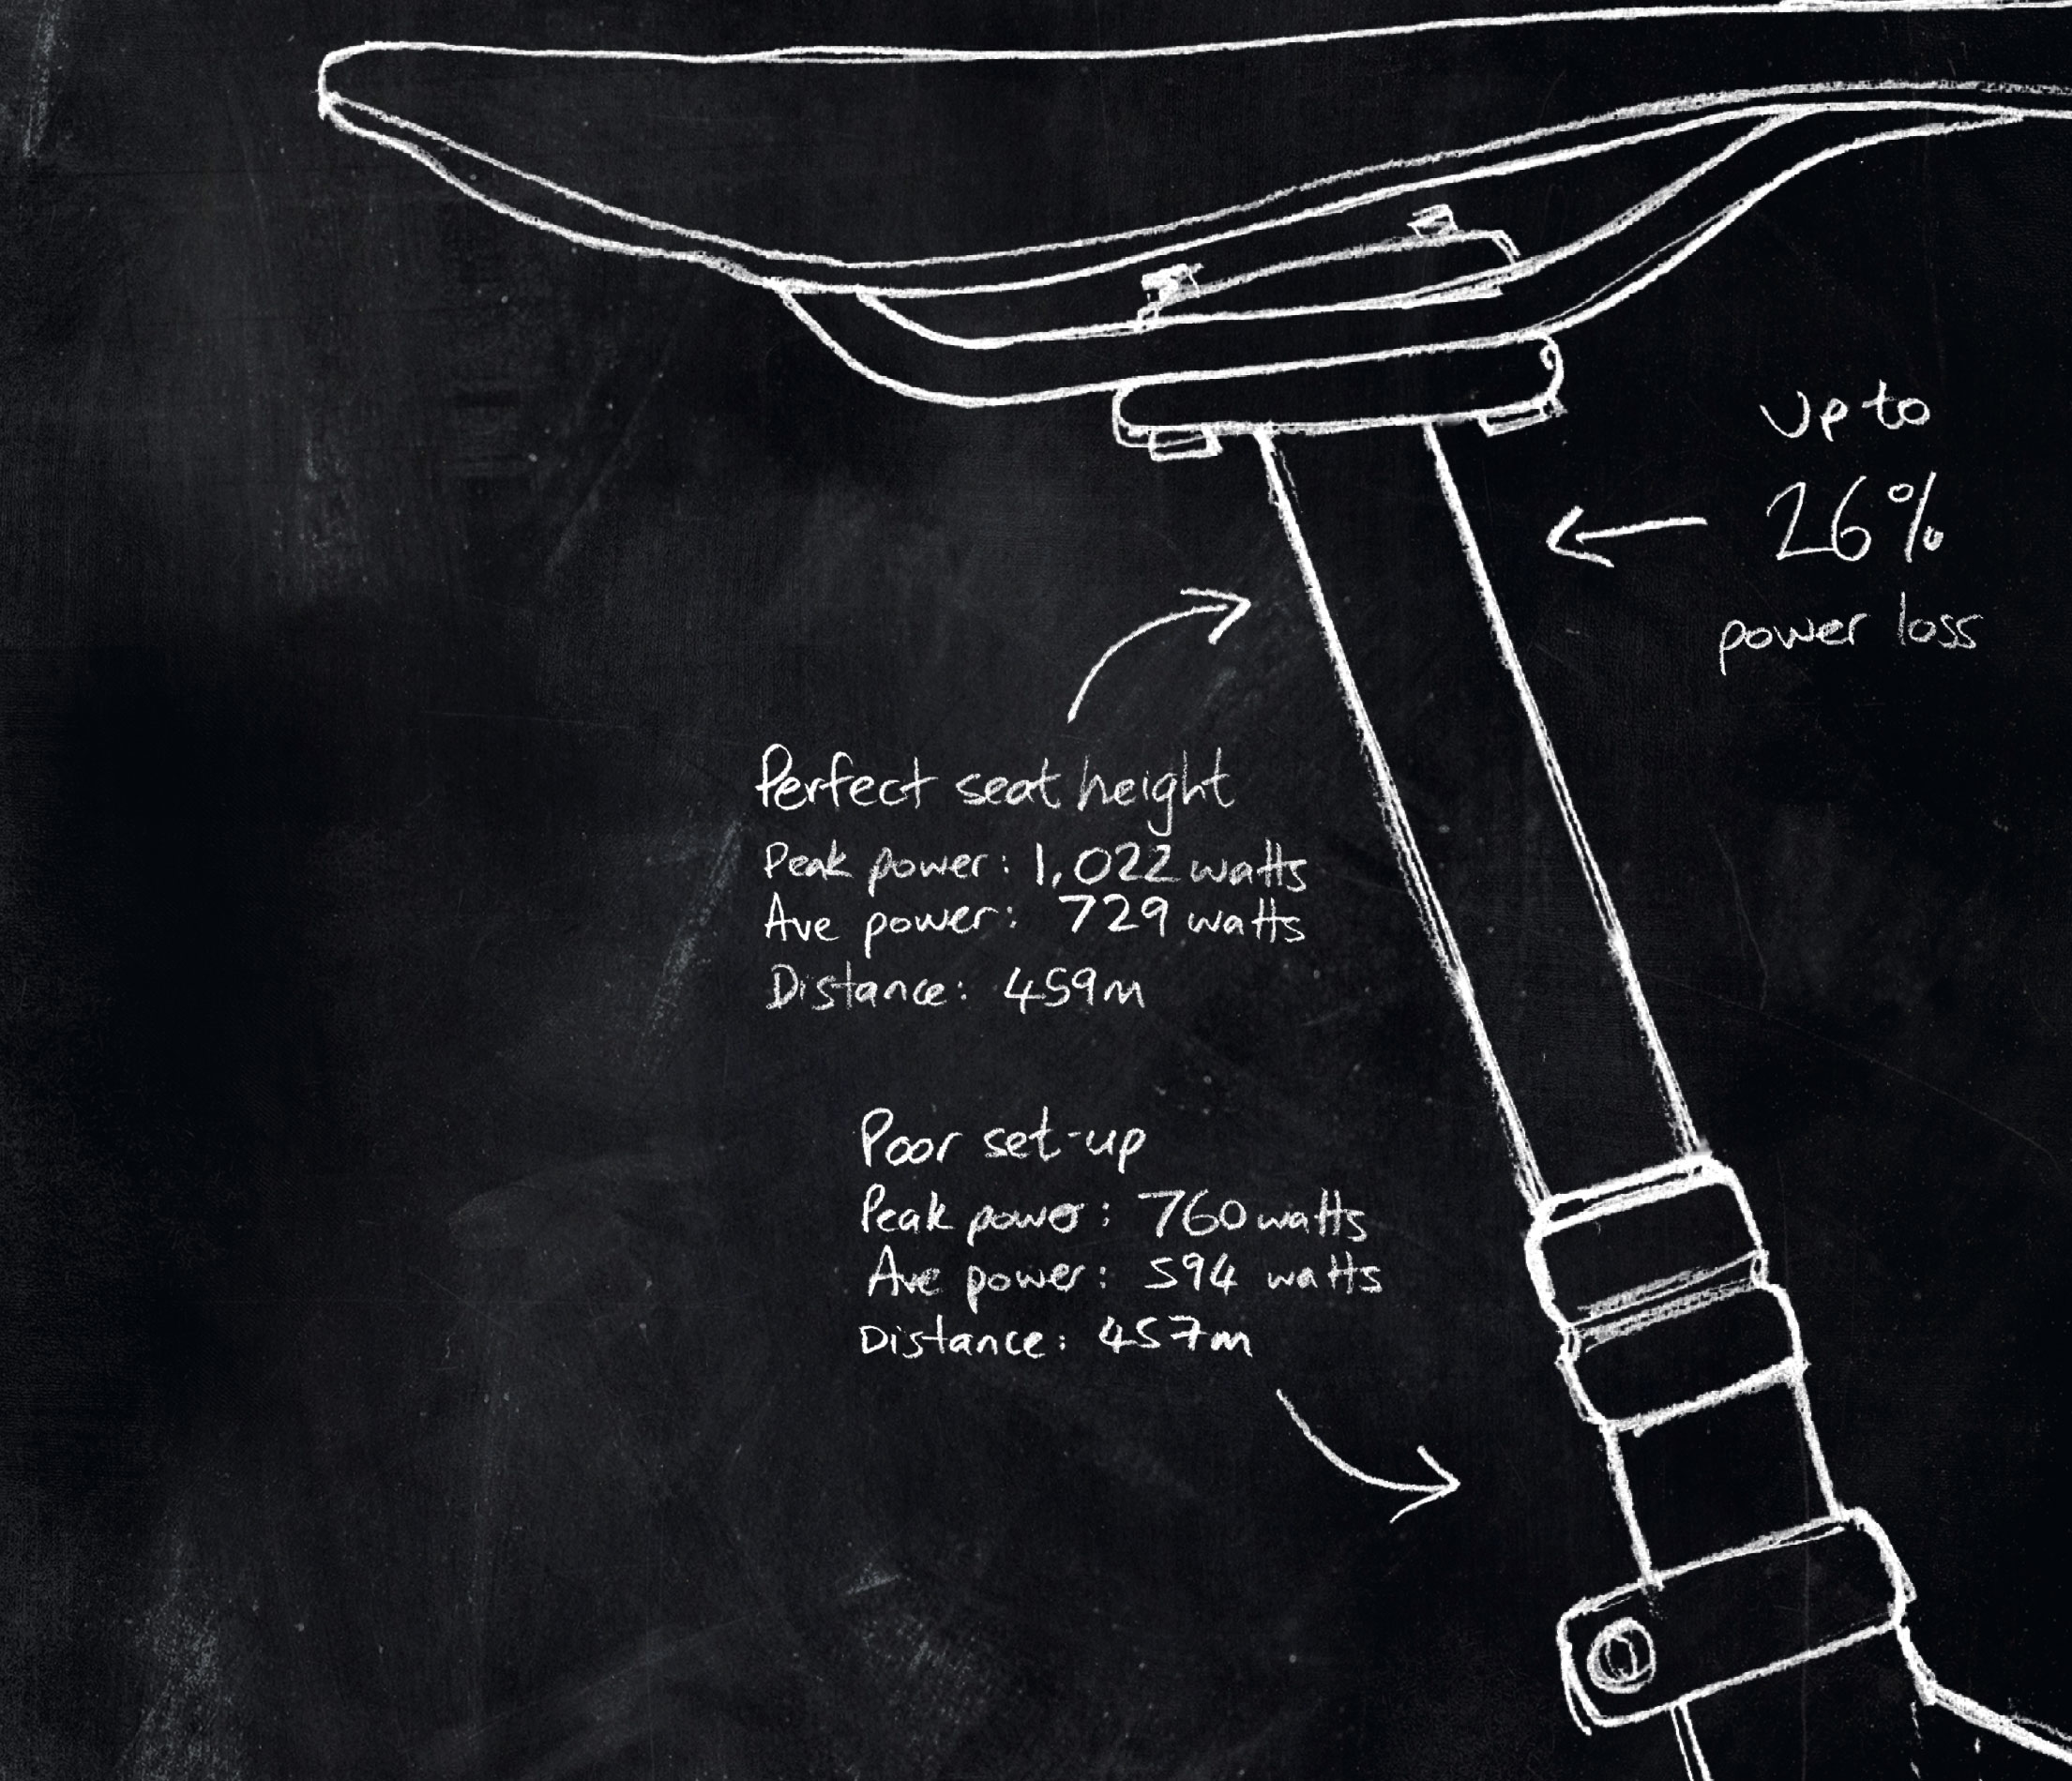 Up to
26%
power loss
Perfect seat height
Peak power: 1,022 watts
Ave power: 729 watts
Distance: 459m
Poor set-up
Peak power: 760 watts
Ave power: 594 watts
Distance: 457m